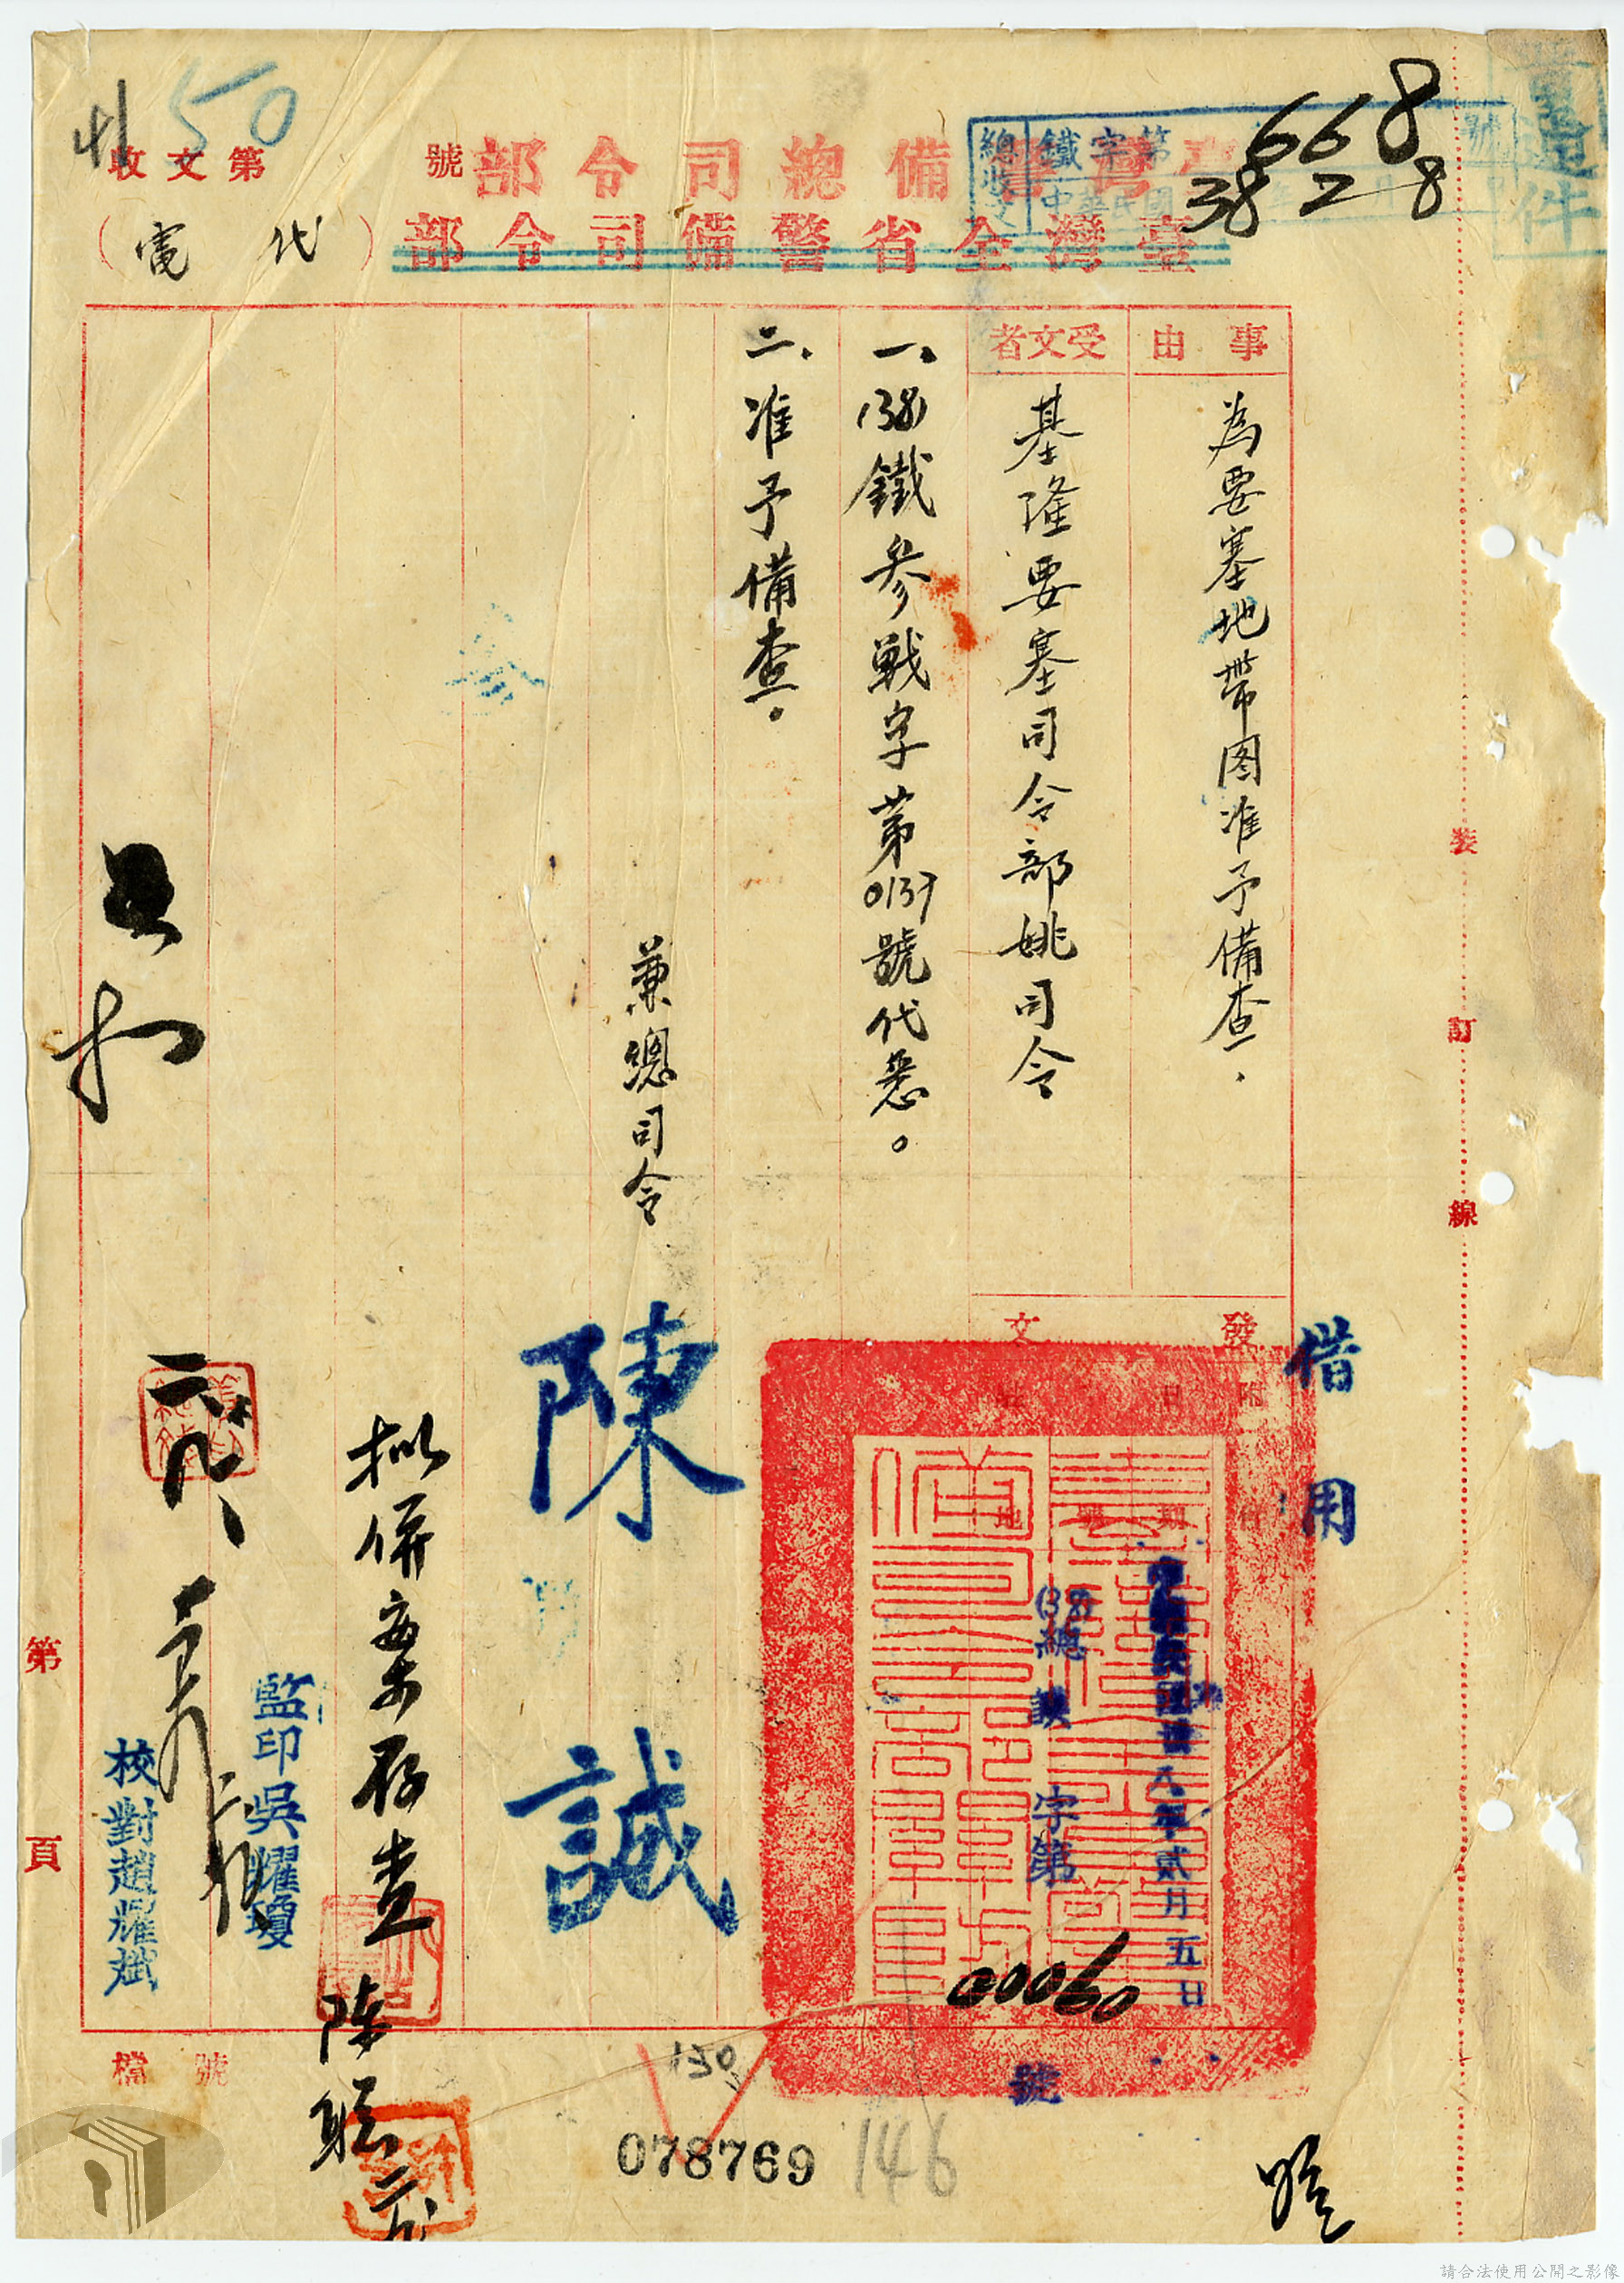 668
38 2 8
臺灣警備總司令部
號
第 文收
50
臺灣全省警備司令部
(代電)
總收文
鐵字第 號
中華民國 年 月 日
事由
為要塞地帶图准予備查.
受文者
基隆要塞司令部姚司令
一、(38)鐵参戰字第0139號代悉。
二、准予備查。
兼總司令
陳誠
發文
借用
中華民國卅八年貳月五日
(38)總 字第
00060
號
拟併案存查
陈
監印吳耀瓊
校對趙耀斌
裝
訂
線
第
頁
檔號
130
078769
146
請合法使用公開之影像